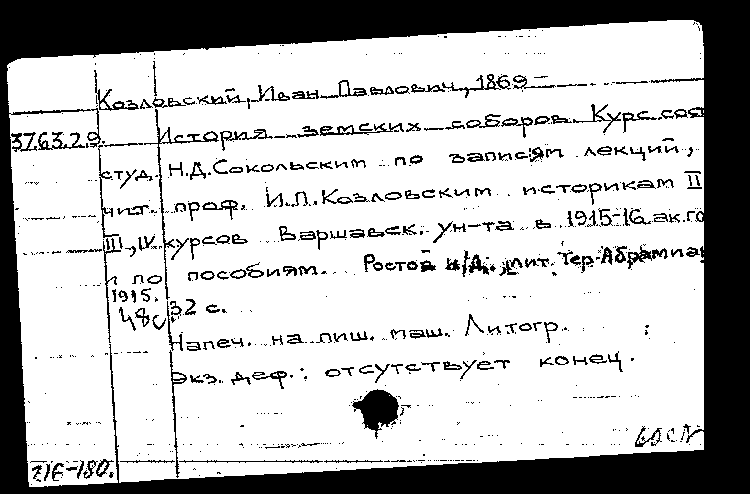 Козловский, Иван Павлович, 1869 –
3763.29. История земских соборов. Курс сос
студ. Н.Д.Сокольским по записям лекций,
чит. проф. И.П.Козловским историкам II
III, IV курсов Варшавск. ун-та в 1915-16 ак.го
и по пособиям. Ростов н/Д., лит. Тер-Абрамиа
1915. 32 с.
48с
Напеч. на пиш. маш. Литогр.
Экз. деф.: отсутствует конец.
216-180.